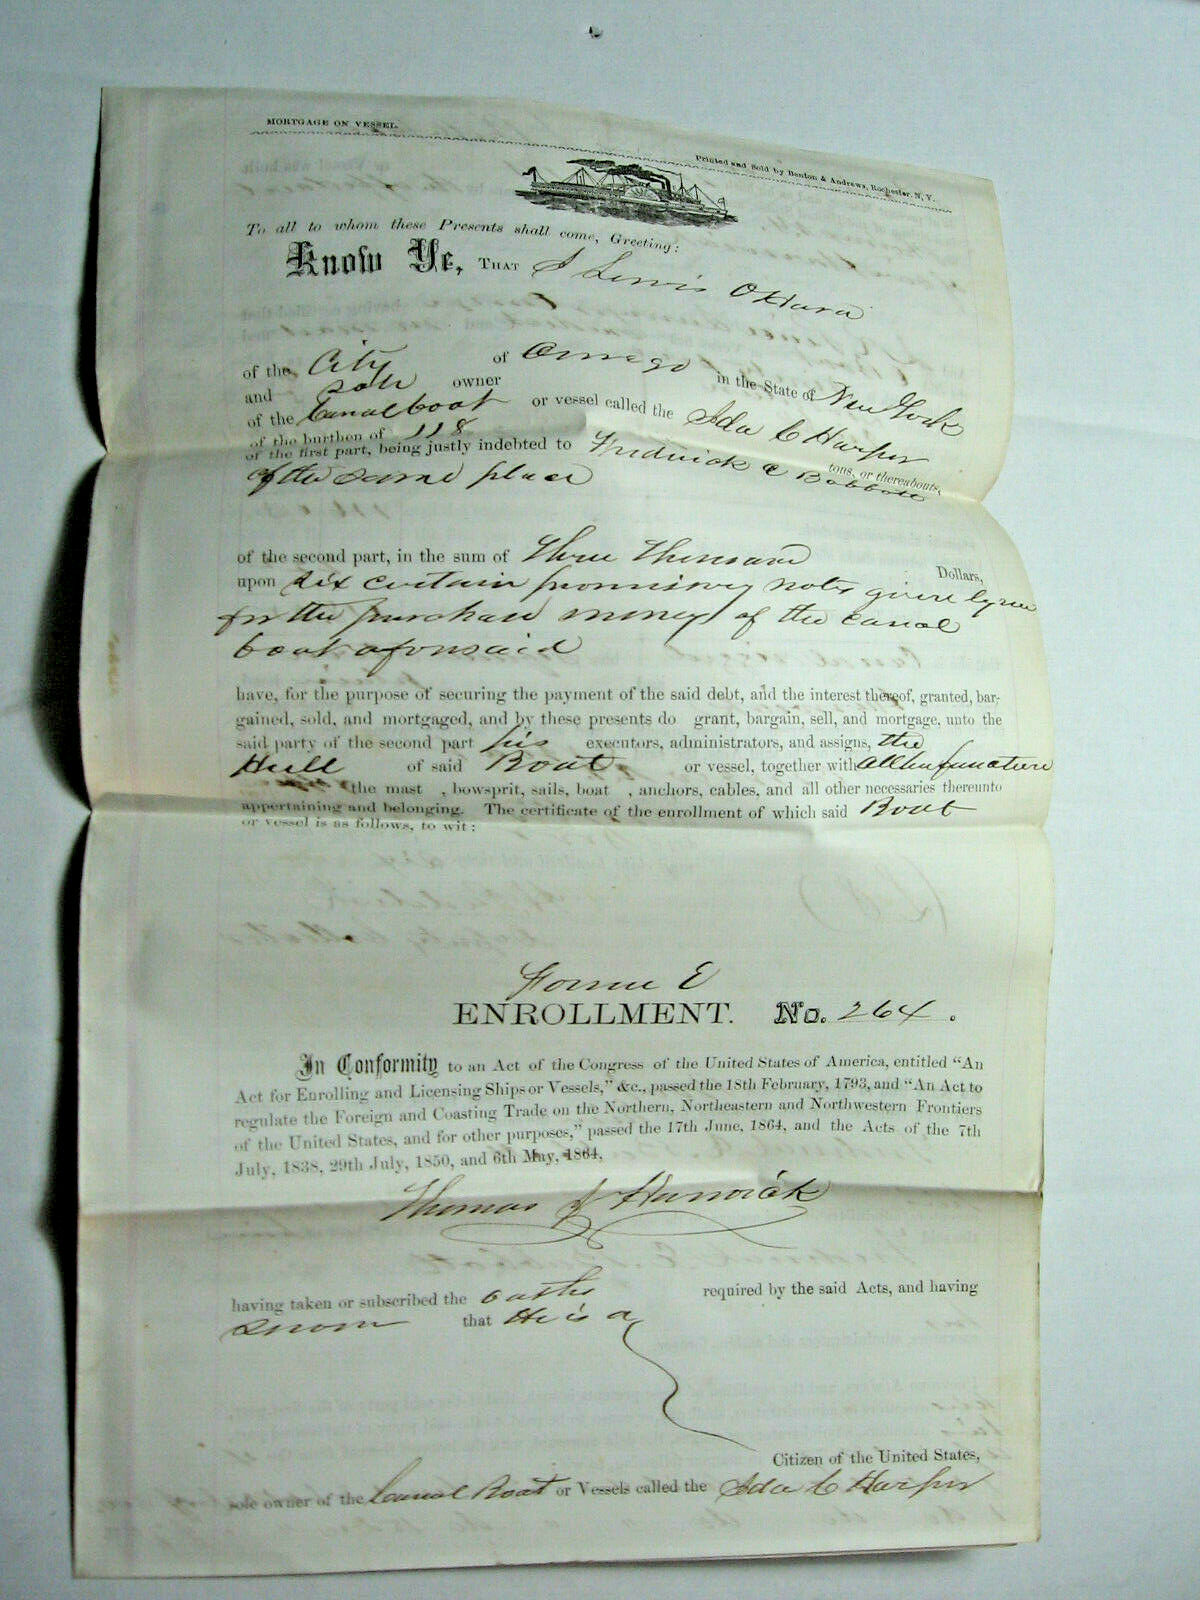 MORTGAGE ON VESSEL.
Printed and Sold by Benton & Andrews, Rochester, N. Y.
To all to whom these Presents shall come, Greeting:
Know Ye, THAT I Lewis O'Hara
of the City of Oswego in the State of New York
and sole owner
of the Canalboat or vessel called the Ida C Harper
of the burthen of 118 tons, or thereabouts,
of the first part, being justly indebted to Frederick C Babbott
of the same place
of the second part, in the sum of Three Thousand Dollars,
upon six certain promissory notes given by me
for the purchase money of the canal
boat aforesaid
have, for the purpose of securing the payment of the said debt, and the interest thereof, granted, bar-
gained, sold, and mortgaged, and by these presents do grant, bargain, sell, and mortgage, unto the
said party of the second part his executors, administrators, and assigns, the
Hull of said Boat or vessel, together with all her furniture
the mast , bowsprit, sails, boat , anchors, cables, and all other necessaries thereunto
appertaining and belonging. The certificate of the enrollment of which said Boat
or vessel is as follows, to wit:
Form E
ENROLLMENT. No. 264.
In Conformity to an Act of the Congress of the United States of America, entitled "An
Act for Enrolling and Licensing Ships or Vessels," &c., passed the 18th February, 1793, and "An Act to
regulate the Foreign and Coasting Trade on the Northern, Northeastern and Northwestern Frontiers
of the United States, and for other purposes," passed the 17th June, 1864, and the Acts of the 7th
July, 1838, 29th July, 1850, and 6th May, 1864,
Thomas J
having taken or subscribed the oaths required by the said Acts, and having
sworn that He is a
Citizen of the United States,
sole owner of the Canal Boat or Vessels called the Ida C Harper